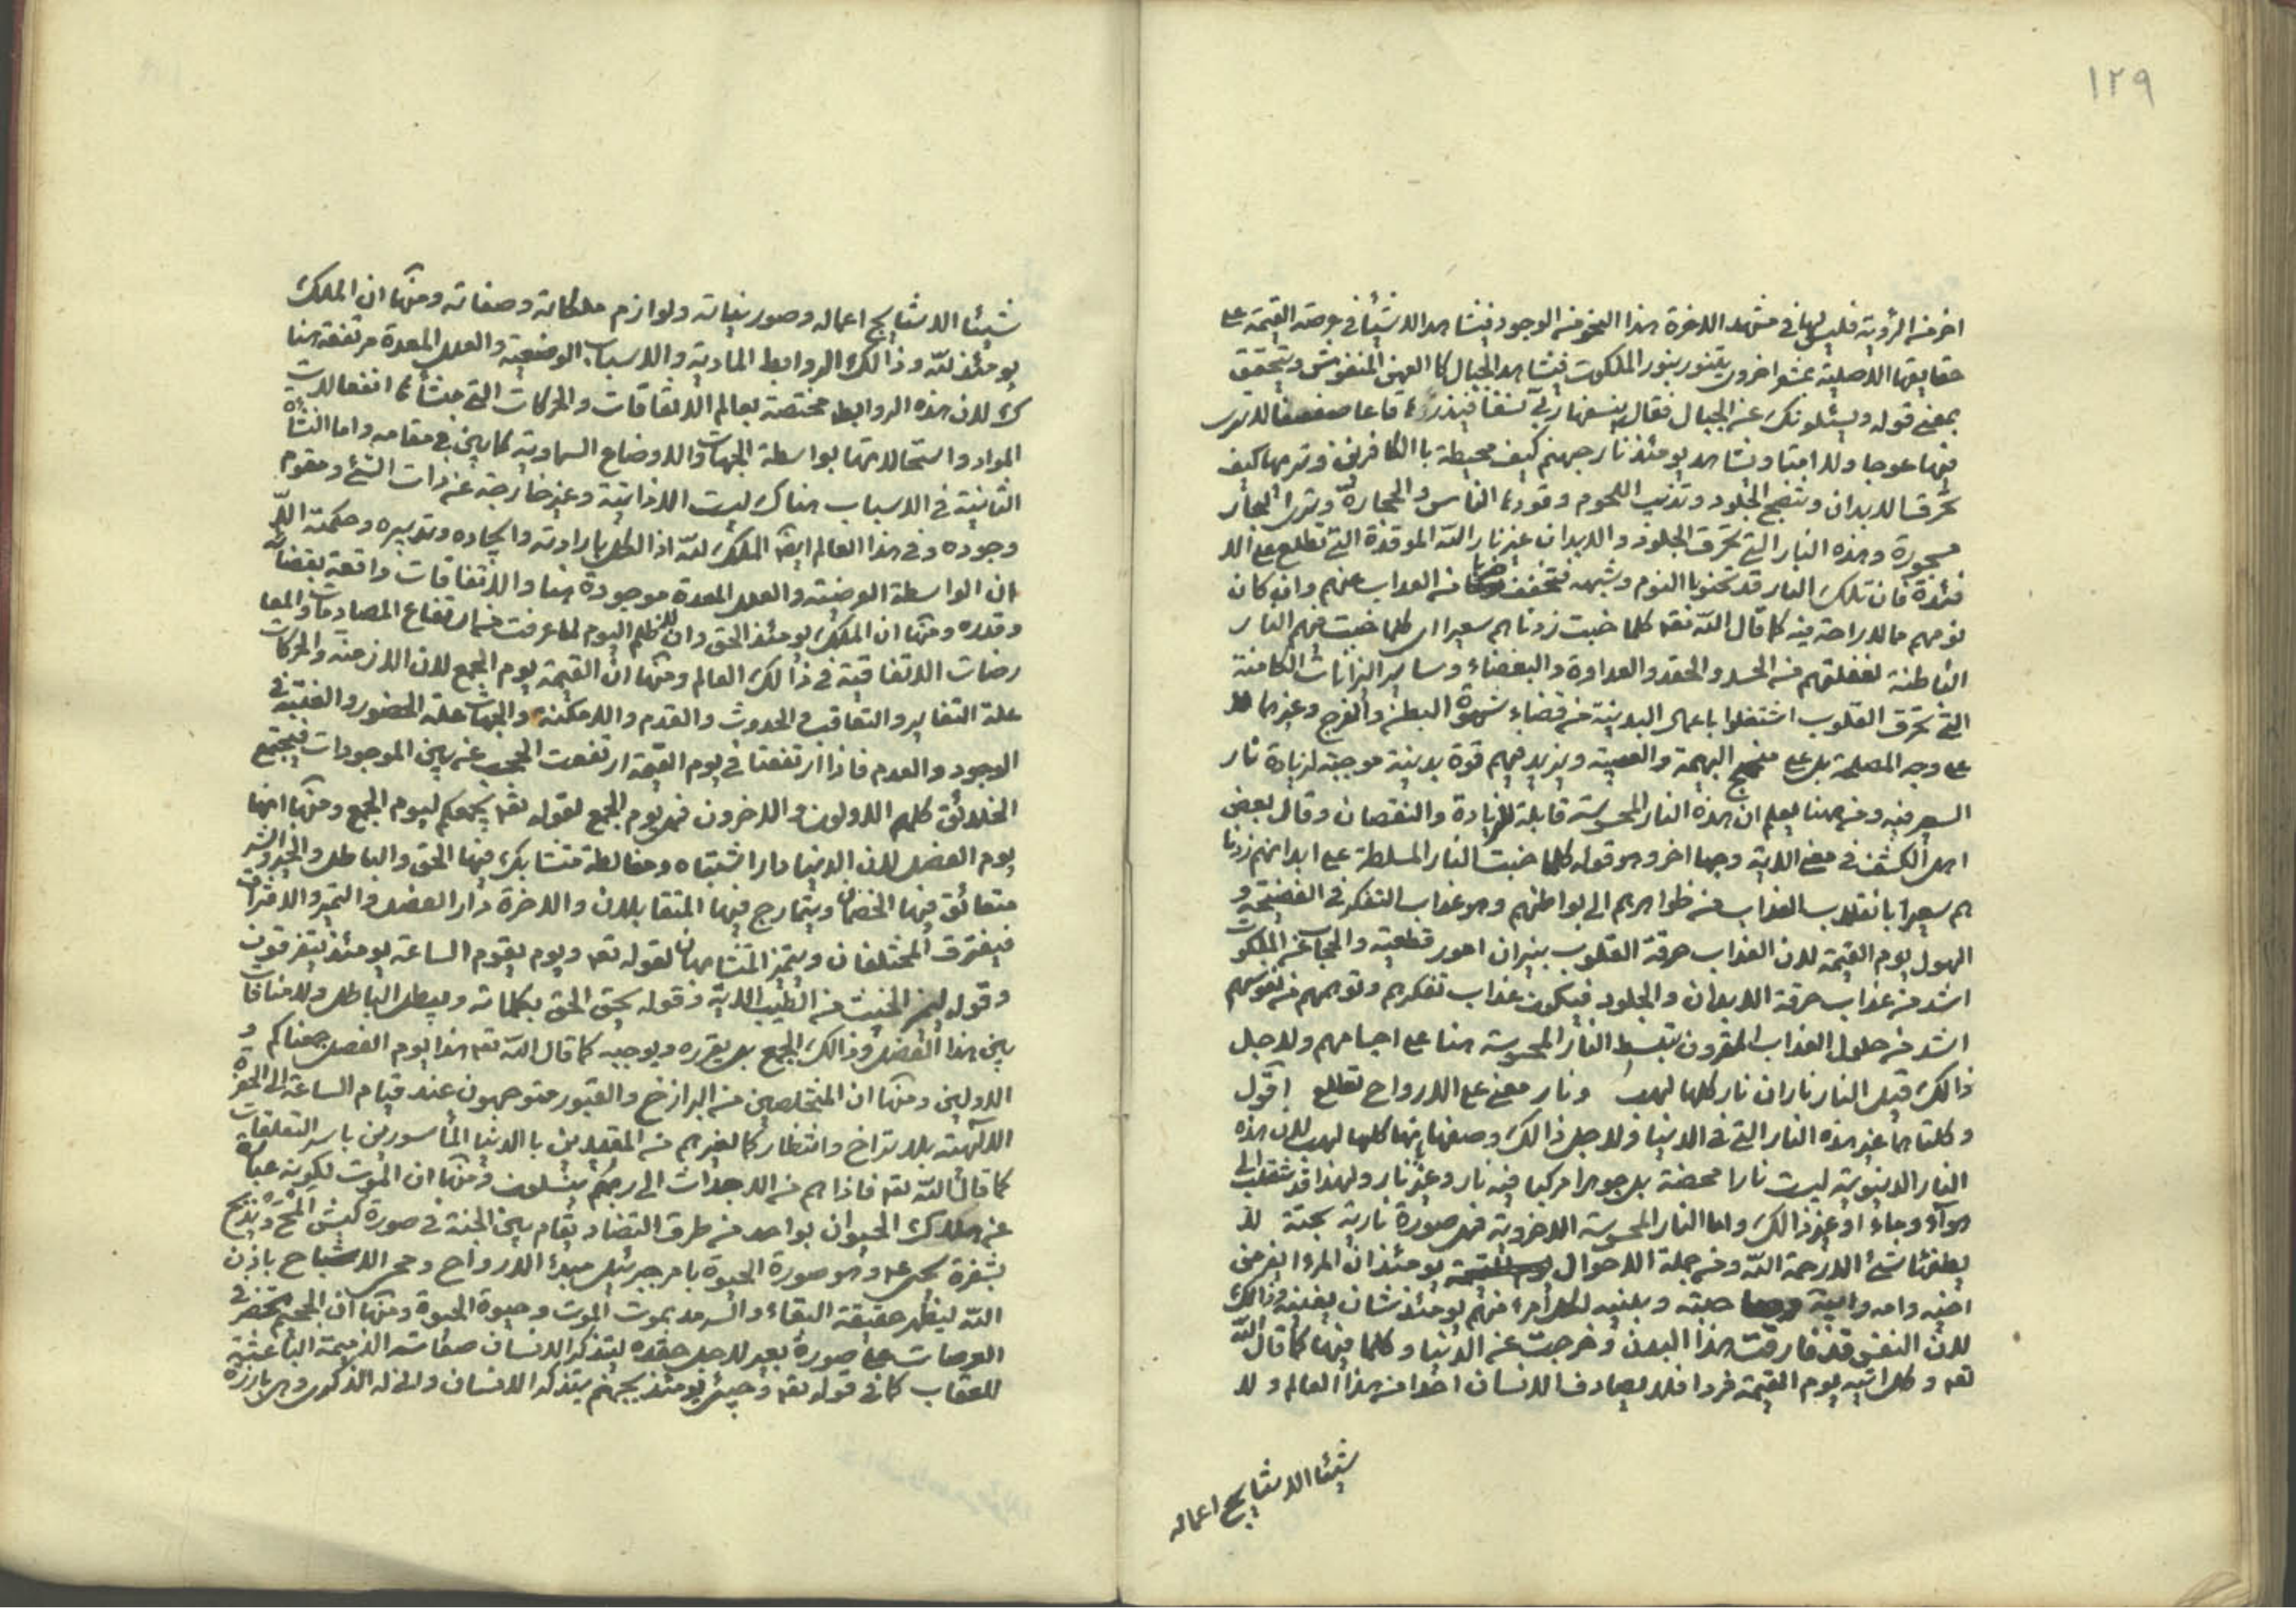 ١٢٩
اخر من الرؤية فليس لها في مشهد الاخرة هذا النحو من الوجود فيشاهد الاشياء في عرصة القيمة على
حقايقها الاصلية بمشعر اخروي يتنور بنور الملكوت فيشاهد الجبال كا العهن المنفوش ويتحقق
بمعنى قوله ويسئلونك عن الجبال فقل ينسفها ربي نسفا فيذرها قاعا صفصفا لا ترى
فيها عوجا ولا امتا ويشاهد يومئذ نار جهنم كيف محيطة با الكافرين وتريها كيف
تحرق الابدان وتنضج الجلود وتذيب اللحوم وقودها الناس والحجارة وترى البحار
مسجورة وهذه النار التي تحرق الجلود والابدان غير نار الله الموقدة التي تطلع على الا
فئدة فان تلك النار قد تخبو با النوم وشبهه فتخفف من العذاب عنهم وان كان
نومهم مما لا راحة فيه كما قال الله تعه كلما خبت زدناهم سعيرا اى كلما خبت منهم النار
الباطنة لغفلتهم من الحسد والحقد والعداوة والبغضاء وساير النيرانات الكامنة
التي تحرق القلوب اشتغلوا باعمال البدنية من قضاء شهوة البطن والفرج وغيرها لا
على وجه المصلحة بل على منهج البهيمة والسبعية ويزيد فيهم قوة بدنية موجبة لزيادة نار
السعير فيه ومن ههنا يعلم ان هذه النار المحسوسة قابلة للزيادة والنقصان وقال بعض
اهل الكشف في معنى الاية وجها اخر وهو قوله كلما خبت النار المسلطة على ابدانهم زدنا
هم سعيرا بانقلاب العذاب من ظواهرهم الى بواطنهم وهو عذاب التفكر في الفضيحة و
الهول يوم القيمة لان العذاب حرقة القلوب بنيران امور قطعية والحجاب عن الملكوت
اشد من عذاب حرقة الابدان والجلود فيكون عذاب تفكرهم وتوهمهم في نفوسهم
اشد من حلول العذاب المقرون بتسلط النار المحسوسة هنا على اجسامهم ولاجل
ذالك قيل النار ناران نار كلها لهب ونار معنى على الارواح تطلع اقول
وكلتا هما غير هذه النار التي في الدنيا ولاجل ذالك وصفها بانها كلها لهب لان هذه
النار الدنيوية ليست نارا محضة بل جوهرا مركبا فيه نار وغير نار ولهذا قد تنقلب الى
هواء وماء او غير ذالك واما النار المحسوسة الاخروية فهي صورة نارية بحتة لا
يطفئها شئ الا رحمة الله ومن جملة الاحوال يومئذ ان المرء يفر من
اخيه وامه وابيه وصاحبته وبنيه لكل امرء منهم يومئذ شان يغنيه وذالك
لان النفس قد فارقت هذا البدن وخرجت عن الدنيا وكلما فيها كما قال الله
تعه وكل اتيه يوم القيمة فردا فلا يصادف الانسان احدا من هذا العالم ولا
شيئا الا نتايج اعماله
شيئا الا نتايج اعماله وصور نياته ولوازم ملكاته وصفاته ومنها ان الملك
يومئذ لله وذالك الروابط المادية والاسباب الوضعية والعلل المعدة مرتفعة هنا
ك لان هذه الروابط مختصة بعالم الاتفاقات والحركات التي منشأها انفعالات
المواد واستحالاتها بواسطة الجهات والاوضاع السماوية كما بين في مقامه واما النشأة
الثانية في الاسباب هناك ليست الا ذاتية وغير خارجة عن ذات الشئ ومقوم
وجوده وفي هذا العالم ايضا الملك لله اذ الكل بارادته وايجاده وتدبيره وحكمته الا
ان الواسطة العرضية والعلل المعدة موجودة هنا والاتفاقات واقعة بقضائه
وقدره ومنها ان الملك يومئذ الحق وان لا ظلم اليوم لما عرفت من ارتفاع المصادمات والمعا
رضات الاتفاقية في ذالك العالم ومنها ان القيمة يوم الجمع لان الازمنة والحركات
علة التغاير والتعاقب في الحدوث والقدم والامكنة والجهات علة الحضور والغيبة في
الوجود والعدم فاذا ارتفعتا في يوم القيمة ارتفعت الحجب عن بين الموجودات فيجتمع
الخلائق كلهم الاولون والاخرون فهي يوم الجمع لقوله تعه يجمعكم ليوم الجمع ومنها انها
يوم الفصل لان الدنيا دار اشتباه ومغالطة متشابك فيها الحق والباطل والخير والشر
متعانق فيها الخصمان ويتمازج فيها المتقابلان والاخرة دار الفصل والتميز والافتراق
فيفترق المختلفان ويتميز المتشابهان لقوله تعه ويوم يقوم الساعة يومئذ يتفرقون
وقوله ليميز الخبيث من الطيب الاية وقوله يحق الحق بكلماته ويبطل الباطل ولا منافاة
بين هذا الفصل وذالك الجمع بل يقرره ويوجبه كما قال الله تعه هذا يوم الفصل جمعناكم و
الاولين ومنها ان المتخلصين من البرازخ والقبور متوجهون عند قيام الساعة الى الحضرة
الالهية بلا تراخ وانتظار كما لغيرهم من المقيدين با الدنيا المأسورين باسر التعلقات
كما قال الله تعه فاذا هم من الاجداث الى ربهم ينسلون ومنها ان الموت لكونه عبارة
عن هلاك الحيوان بواحد من طرف التضاد يقام بين الجنة في صورة كبش املح ويذبح
بشفرة يحيى ع وهو صورة الحيوة بامر جبرئيل مبدء الارواح ومحى الاشباح باذن
الله ليظهر حقيقة البقاء والسرمد بموت الموت وحيوة الحيوة ومنها ان الجحيم تحضر في
العرصات على صورة بعير لاجل حقده ليتذكر الانسان صفاته الذميمة الباعثة
للعقاب كما في قوله تعه وجيئ يومئذ بجهنم يتذكر الانسان وانى له الذكرى وهى بارزة